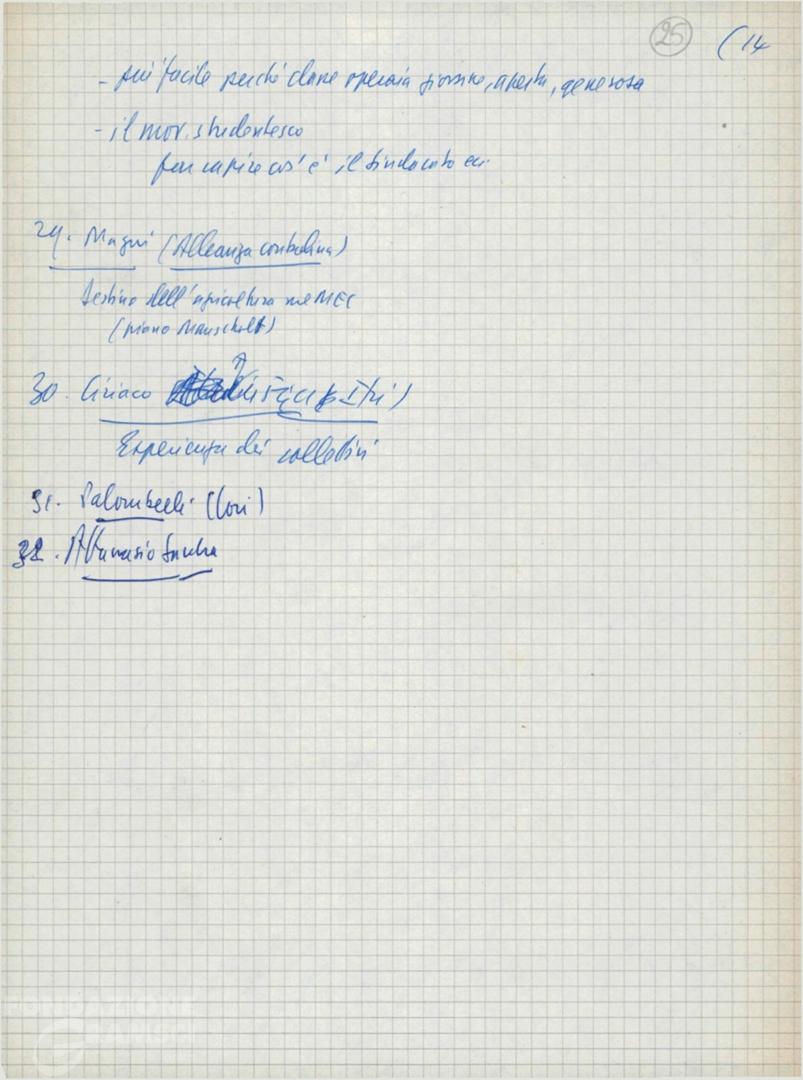 25 (14
- più facile perché classe operaia giovane, aperta, generosa
- il mov. studentesco
per capire cos'è il sindacato ecc.
29. Magni (Alleanza contadina)
destino dell'agricoltura nel MEC
(piano Mansholt)
30. Ciriaco
Esperienza dei collettivi
31. Palombelli (Cori)
32. Attanasio
FONDAZIONE
GRAMSCI